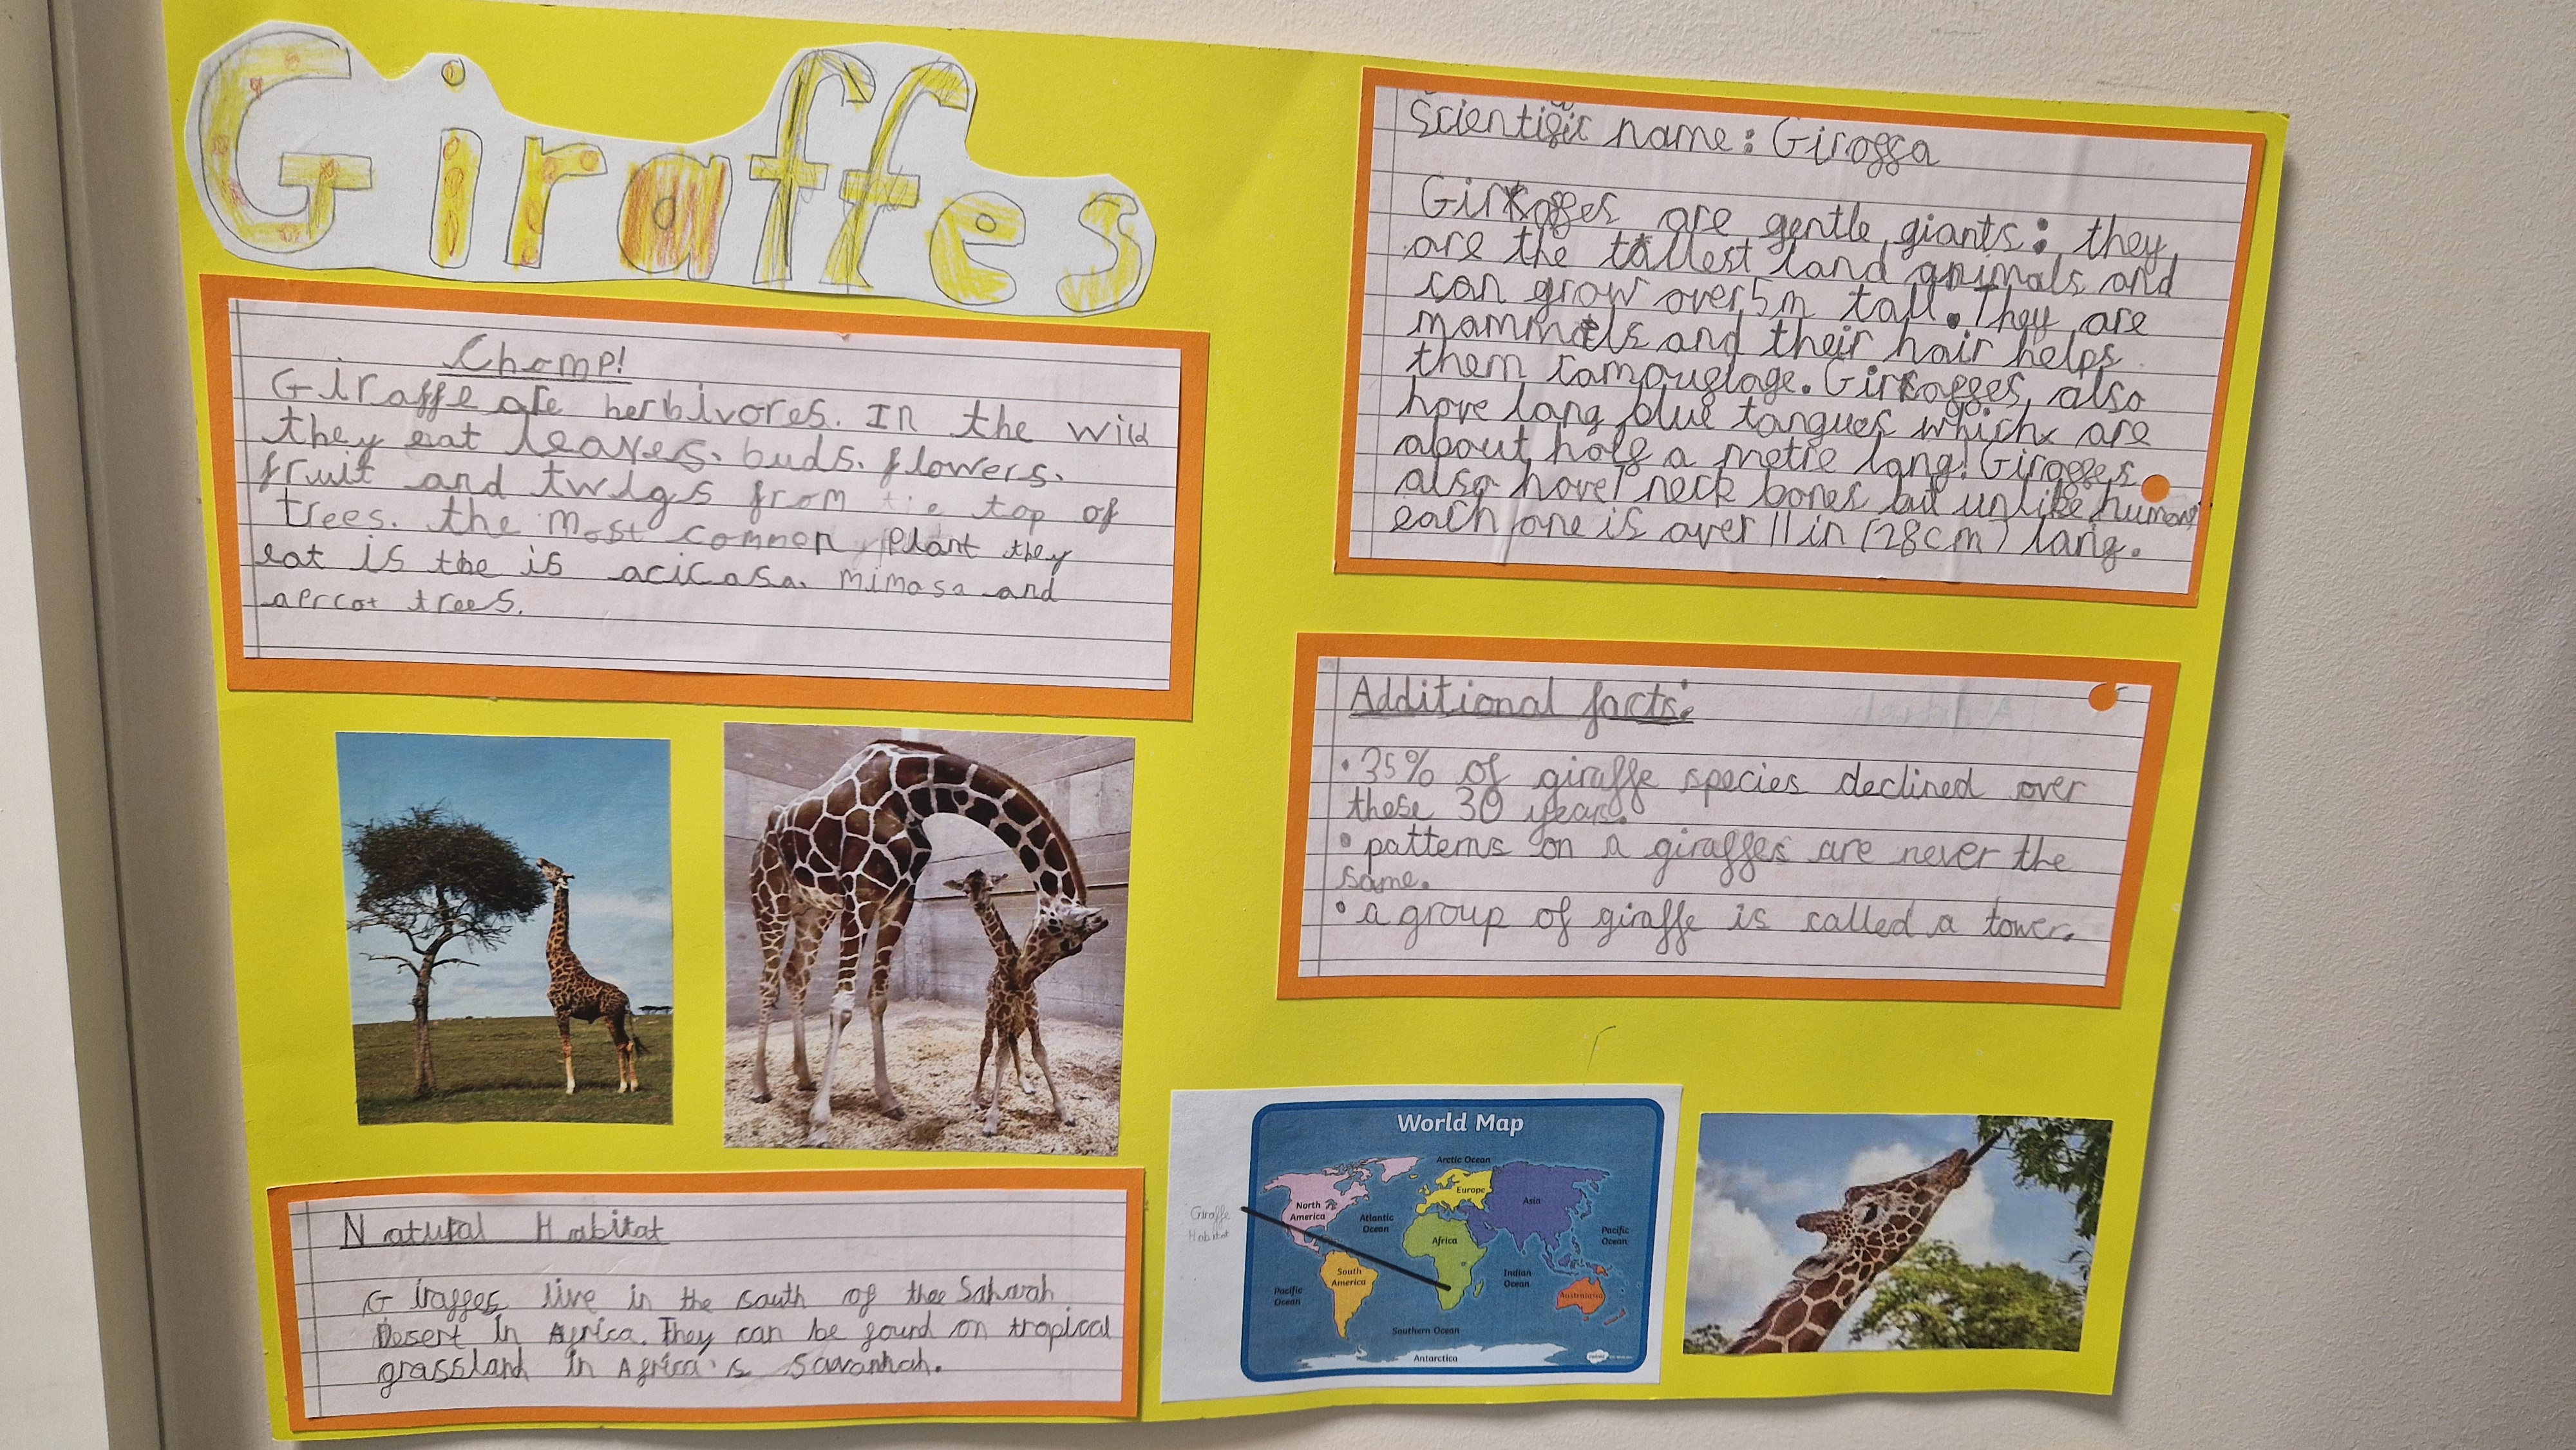 Giraffes
Chomp!
Giraffe are herbivores. In the wild
they eat leaves. buds. flowers.
fruit and twigs from the top of
trees. the most common plant they
eat is the is acicasa. mimosa and
aprcot trees.
Natural Habitat
Giraffes live in the south of thee Saharah
Desert in Africa. They can be found on tropical
grassland in Africa's Savannah.
Scientific name: Giraffa
Giraffes are gentle giants: they
are the tallest land animals and
can grow over 5m tall. They are
mammals and their hair helps
them camouflage. Giraffes also
have long blue tongues which are
about half a metre long! Giraffes
also have 7 neck bones but unlike human
each one is over 11in (28cm) long.
Additional facts:
• 35% of giraffe species declined over
these 30 years.
• patterns on a giraffes are never the
same.
• a group of giraffe is called a tower.
Giraffe
Habitat
World Map
Arctic Ocean
North
America
Europe
Asia
Atlantic
Ocean
Pacific
Ocean
Africa
South
America
Indian
Ocean
Pacific
Ocean
Australasia
Southern Ocean
Antarctica